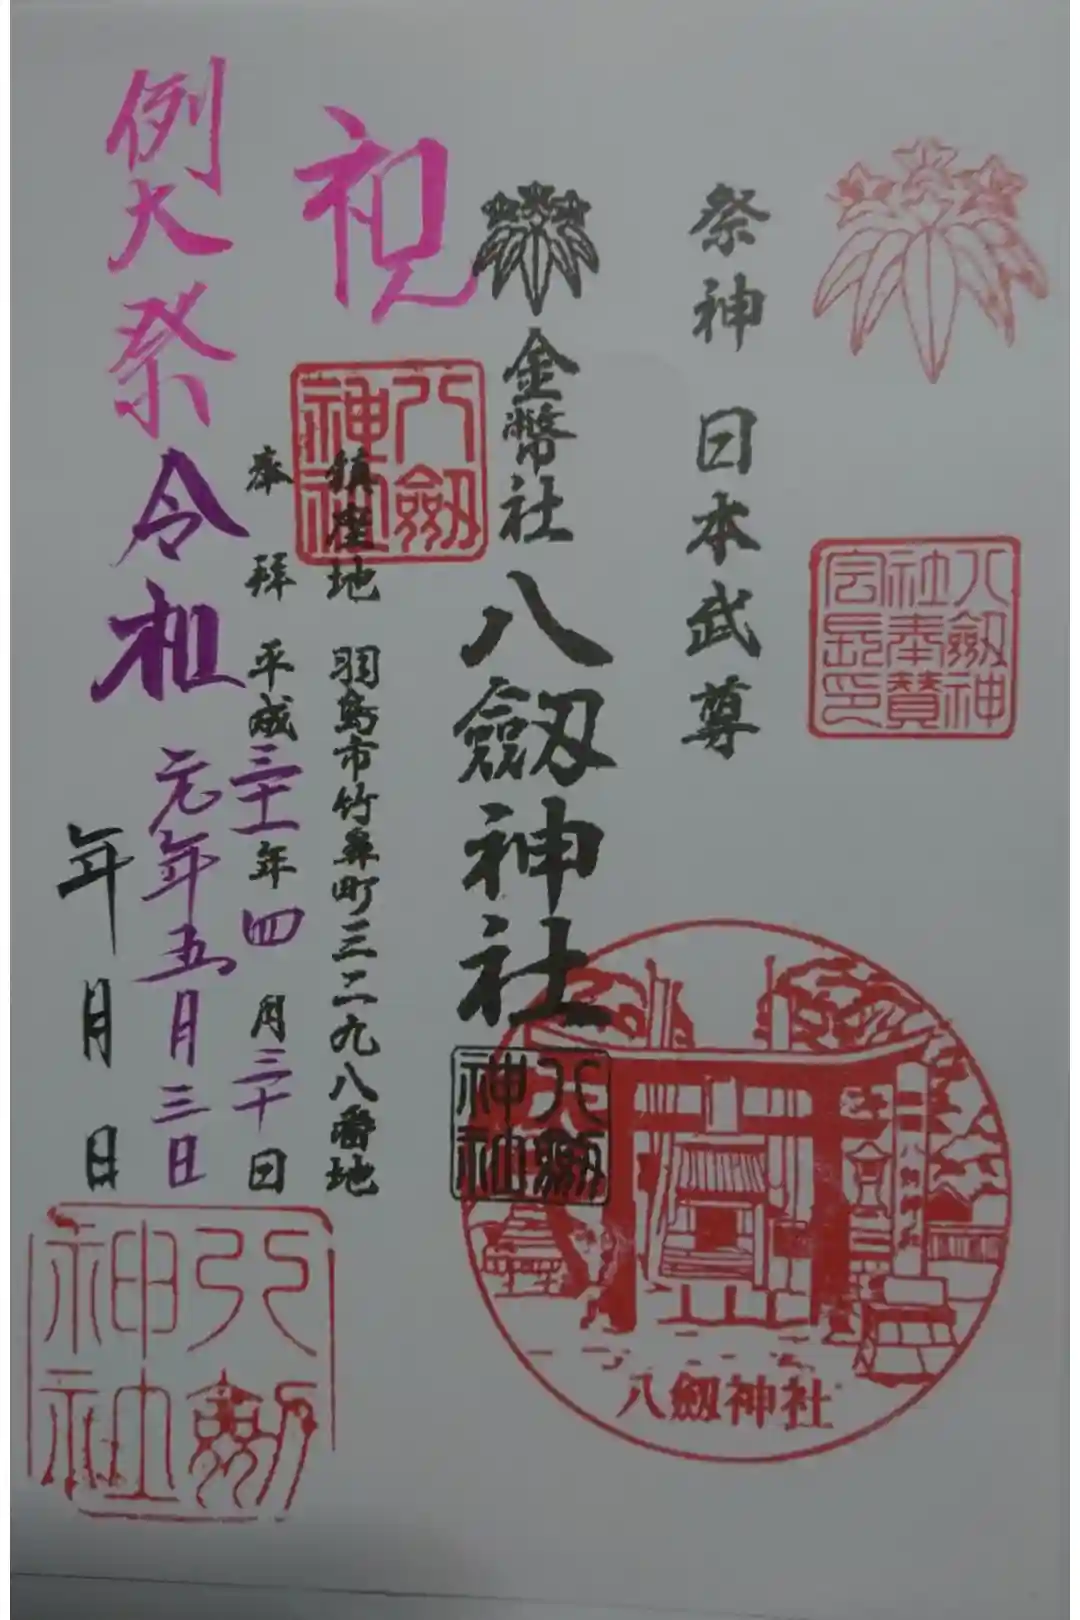 祭神 日本武尊
八劔神社奉賛会長印
金幣社 八劔神社
八劔神社
八劔神社
八劔神社
八劔神社
祝
八劔神社
鎮座地 羽島市竹鼻町三二九八番地
奉拝 平成三十一年四月三十日
例大祭 令和元年五月三日
年月日
八劔神社